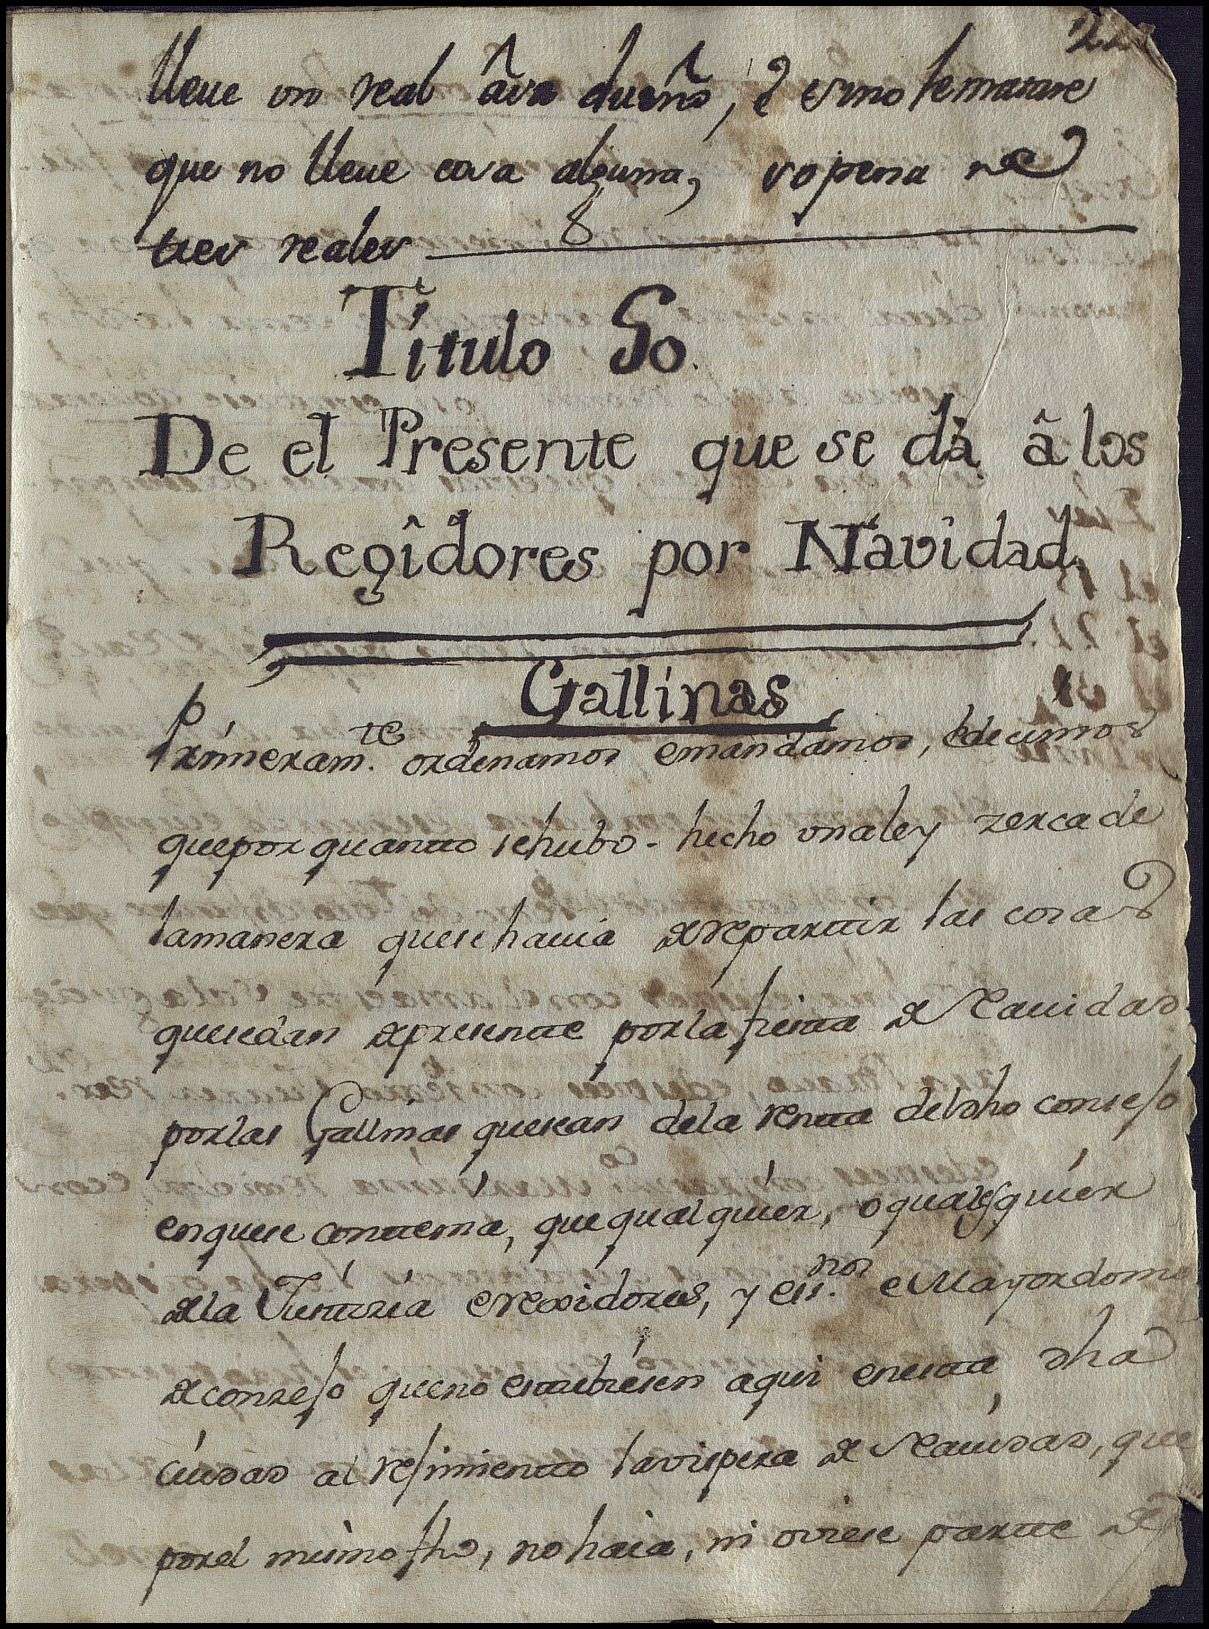 lleue un real â su dueño, é si no le matare
que no lleue cosa alguna, so pena de
tres reales
Título 50.
De el Presente que se dà â los
Regidores por Navidad
Gallinas
Primeram.te ordenamos e mandamos, e decimos
que por quantto se hubo hecho una ley zerca de
la manera que se hauia de reparttir las cosas
que se dan de presente por la fiesta de Nauidad
por las Gallinas que sean de la rentta del dho consejo
en que se conttenia, que qualquier, o qualesquier
de la Justtiçia e rexidores, y ess.nos e Mayordomo
de consejo que no estubiesen aqui en esta dha
ciudad al rejimientto la vispera de Nauidad, que
por el mismo fho, no haia, ni oviese partte de